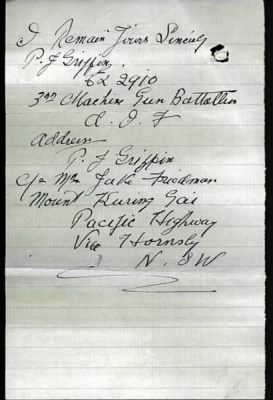 I Remain Yours Sincely
P. J Griffin.
2910
3rd Machine Gun Battallion
A. I. F
Address
P. J Griffin
C/o Mr Jake Friedman
Mount Kuring Gai
Pacific Highway
Via Hornsby
N. S W